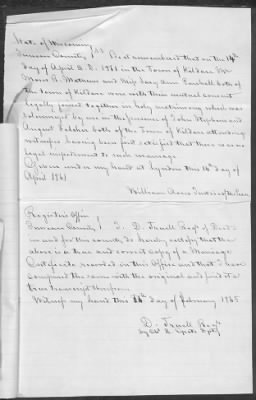 State of Wisconsin } SS
Juneau County } Be it remembered that on the 14th
day of April A.D. 1861 in the Town of Kildare Mr
Moses R. Mathews and Miss Lucy Ann both of
the Town of Kildare were with their mutual consent
legally joined together in holy matrimony which was
solemnized by me in the presence of John Stephens and
August both of the Town of Kildare attending
witnesses having been first satisfied that there was no
legal impediment to such marriage
Given under my hand at Lyndon this 14th day of
April 1861
William Justice of the Peace
Registers Office
Juneau County } I, D. Register of Deeds
in and for this county do hereby certify that the
above is a true and correct copy of a Marriage
Certificate recorded in this Office and that I have
compared the same with the original and find it a
true transcript therefrom
Witness my hand this day of February 1865
D.
by